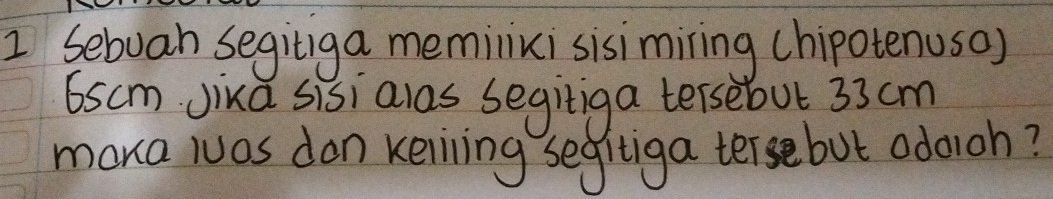 1 Sebuah segitiga memiliki sisi miring (hipotenusa)
65cm. Jika sisi alas segitiga tersebut 33 cm
maka luas dan keliling segitiga tersebut adalah?